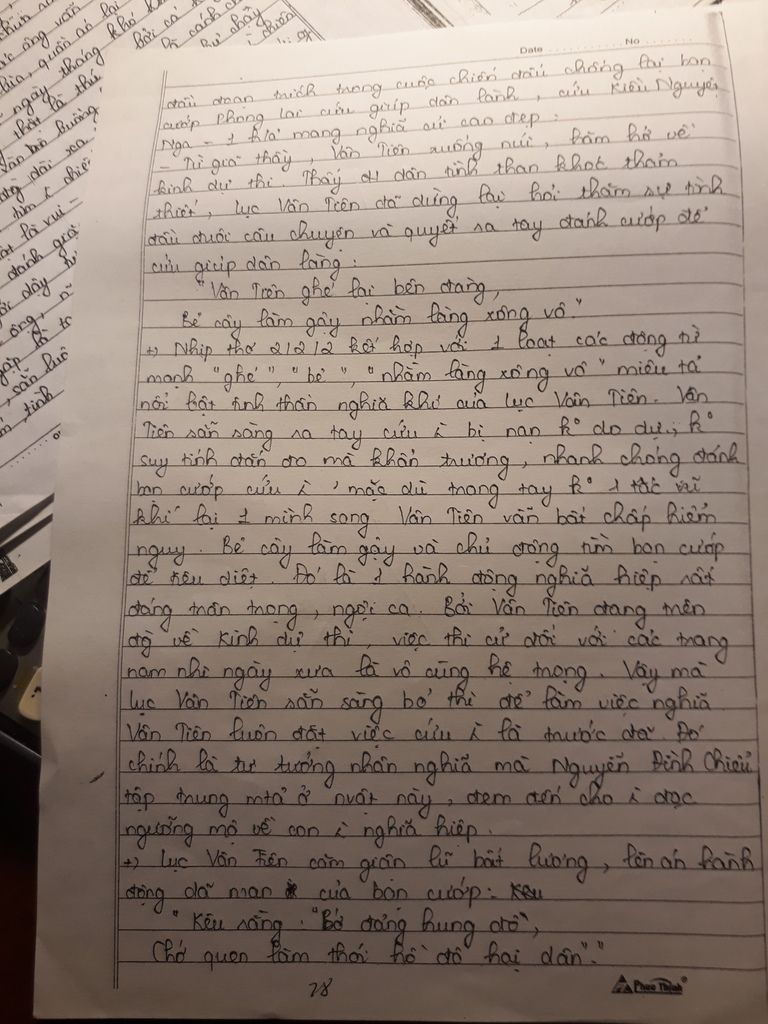 Date No
đầu đoạn trích trong cuộc chiến đấu chống lại bọn
cướp Phong Lai cứu giúp dân lành, cứu Kiều Nguyệt
Nga - 1 h/a' mang nghĩa cử cao đẹp:
- Từ giã thầy, Vân Tiên xuống núi, hăm hở về
kinh dự thi. Thấy dân tình than khóc thảm
thiết, Lục Vân Tiên đã dừng lại hỏi thăm sự tình
đầu đuôi câu chuyện và quyết ra tay đánh cướp để
cứu giúp dân làng:
"Vân Tiên ghé lại bên đàng,
Bẻ cây làm gậy nhằm làng xông vô."
+) Nhịp thơ 2/2/2 kết hợp với 1 loạt các động từ
mạnh "ghé", "bẻ", "nhằm làng xông vô" miêu tả
nổi bật tinh thần nghĩa khí của Lục Vân Tiên. Vân
Tiên sẵn sàng ra tay cứu i bị nạn k° do dự, k°
suy tính đắn đo mà khẩn trương, nhanh chóng đánh
bọn cướp cứu i, mặc dù trong tay k° 1 tấc vũ
khí lại 1 mình song Vân Tiên vẫn bất chấp hiểm
nguy. Bẻ cây làm gậy và chủ động tìm bọn cướp
để tiêu diệt. Đó là 1 hành động nghĩa hiệp rất
đáng trân trọng, ngợi ca. Bởi Vân Tiên đang trên
đg` về kinh dự thi, việc thi cử đối với các trang
nam nhi ngày xưa là vô cùng hệ trọng. Vậy mà
Lục Vân Tiên sẵn sàng bỏ thi để làm việc nghĩa.
Vân Tiên luôn đặt việc cứu i là trước đã. Đó
chính là tư tưởng nhân nghĩa mà Nguyễn Đình Chiểu
tập trung mtả ở nvật này, đem đến cho i đọc
ngưỡng mộ về con i nghĩa hiệp.
+) Lục Vân Tiên căm giận lũ bất lương, lên án hành
động dã man của bọn cướp:
"Kêu rằng: "Bớ đảng hung đồ",
Chớ quen làm thói hồ đồ hại dân"."
28
Phuc Thinh